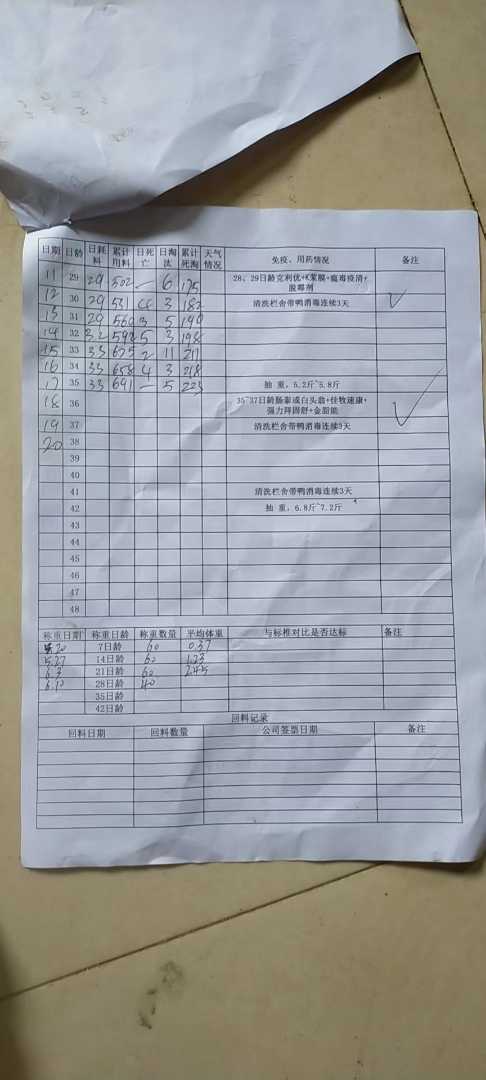 日期 日龄 日耗料 累计用料 日死亡 日淘汰 累计死淘 天气情况 免疫、用药情况 备注
11 29 29 502 — 6 175 28、29日龄克利优+K浆膜+瘟毒疫清+脱霉剂
12 30 29 531 3 182 清洗栏舍带鸭消毒连续3天 ✓
13 31 29 560 3 5 190
14 32 32 592 5 3 198
15 33 33 625 2 11 211
16 34 33 658 4 3 218
17 35 33 691 — 5 223 抽 重，5.2斤~5.8斤
18 36 35~37日龄肠泰或白头翁+佳牧速康+强力拜固舒+金脂能
19 37 清洗栏舍带鸭消毒连续3天
20 38
39
40
41 清洗栏舍带鸭消毒连续3天
42 抽 重，6.8斤~7.2斤
43
44
45
46
47
48
称重日期 称重日龄 称重数量 平均体重 与标准对比是否达标 备注
5.20 7日龄 60 0.37
5.27 14日龄 60 1.23
6.3 21日龄 60 2.45
6.10 28日龄 40
35日龄
42日龄
回料记录
回料日期 回料数量 公司签票日期 备注